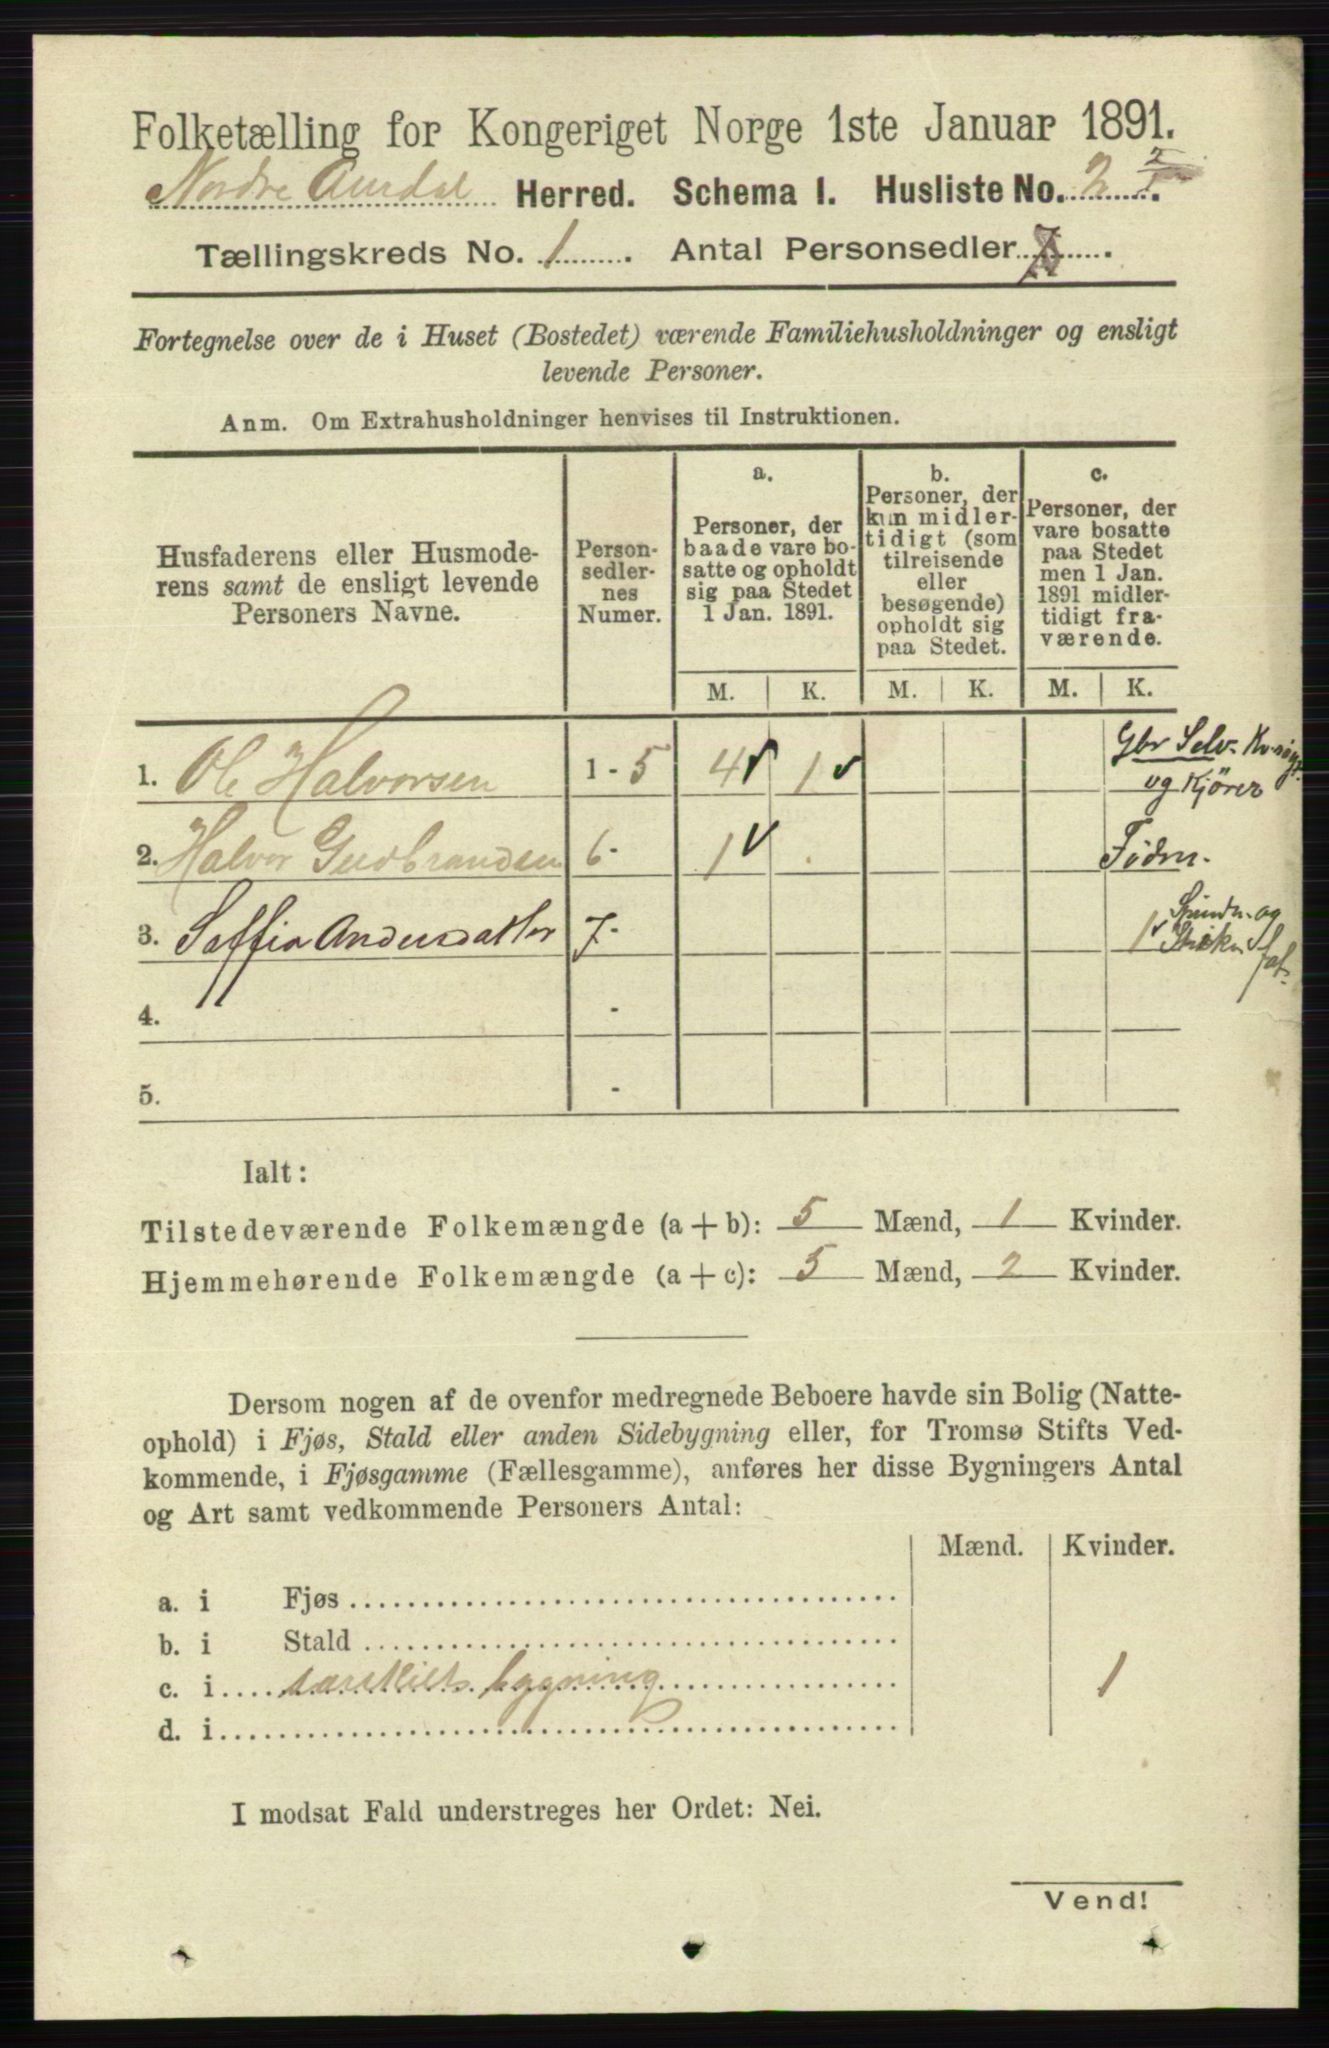 Folketælling for Kongeriget Norge 1ste Januar 1891.
Nordre Aurdal Herred. Schema I. Husliste No. 2
Tællingskreds No. 1. Antal Personsedler 7.
Fortegnelse over de i Huset (Bostedet) værende Familiehusholdninger og ensligt
levende Personer.
Anm. Om Extrahusholdninger henvises til Instruktionen.
Husfaderens eller Husmode-
rens samt de ensligt levende
Personers Navne.
Person-
sedler-
nes
Numer.
a.
Personer, der
baade vare bo-
satte og opholdt
sig paa Stedet
1 Jan. 1891.
b.
Personer, der
kun midler-
tidigt (som
tilreisende
eller
besøgende)
opholdt sig
paa Stedet.
c.
Personer, der
vare bosatte
paa Stedet
men 1 Jan.
1891 midler-
tidigt fra-
værende.
M. K. M. K. M. K.
Gbr Selv
1. Ole Halvorsen 1 - 5 4 1
og Kjører
2. Halvor Gudbrandsen 6 - 1 Födr.
Spindr. og
3. Saffia Andersdatter 7 - 1
4. -
5. -
Ialt:
Tilstedeværende Folkemængde (a + b): 5 Mænd, 1 Kvinder.
Hjemmehørende Folkemængde (a + c): 5 Mænd, 2 Kvinder.
Dersom nogen af de ovenfor medregnede Beboere havde sin Bolig (Natte-
ophold) i Fjøs, Stald eller anden Sidebygning eller, for Tromsø Stifts Ved-
kommende, i Fjøsgamme (Fællesgamme), anføres her disse Bygningers Antal
og Art samt vedkommende Personers Antal:
Mænd. Kvinder.
a. i Fjøs
b. i Stald
c. i særskilt bygning 1
d. i
I modsat Fald understreges her Ordet: Nei.
Vend!